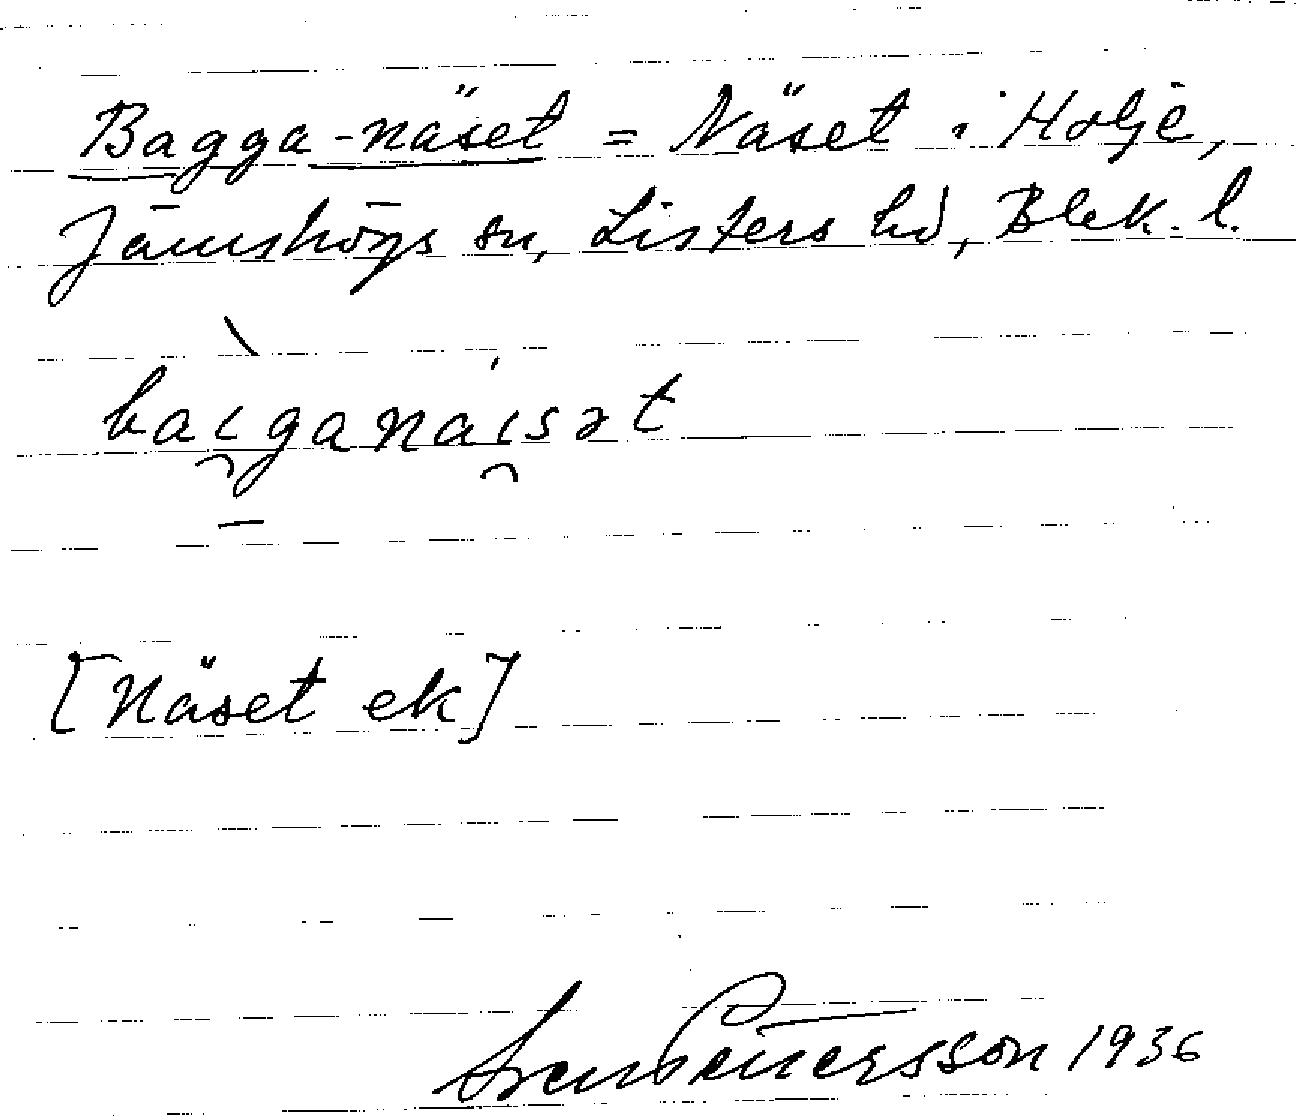 Bagga-näset = Näset i Holje,
Jämshögs sn, Listers hd, Blek. l.
baɩganáɩsət
[Näset ek]
Sven Pettersson 1936